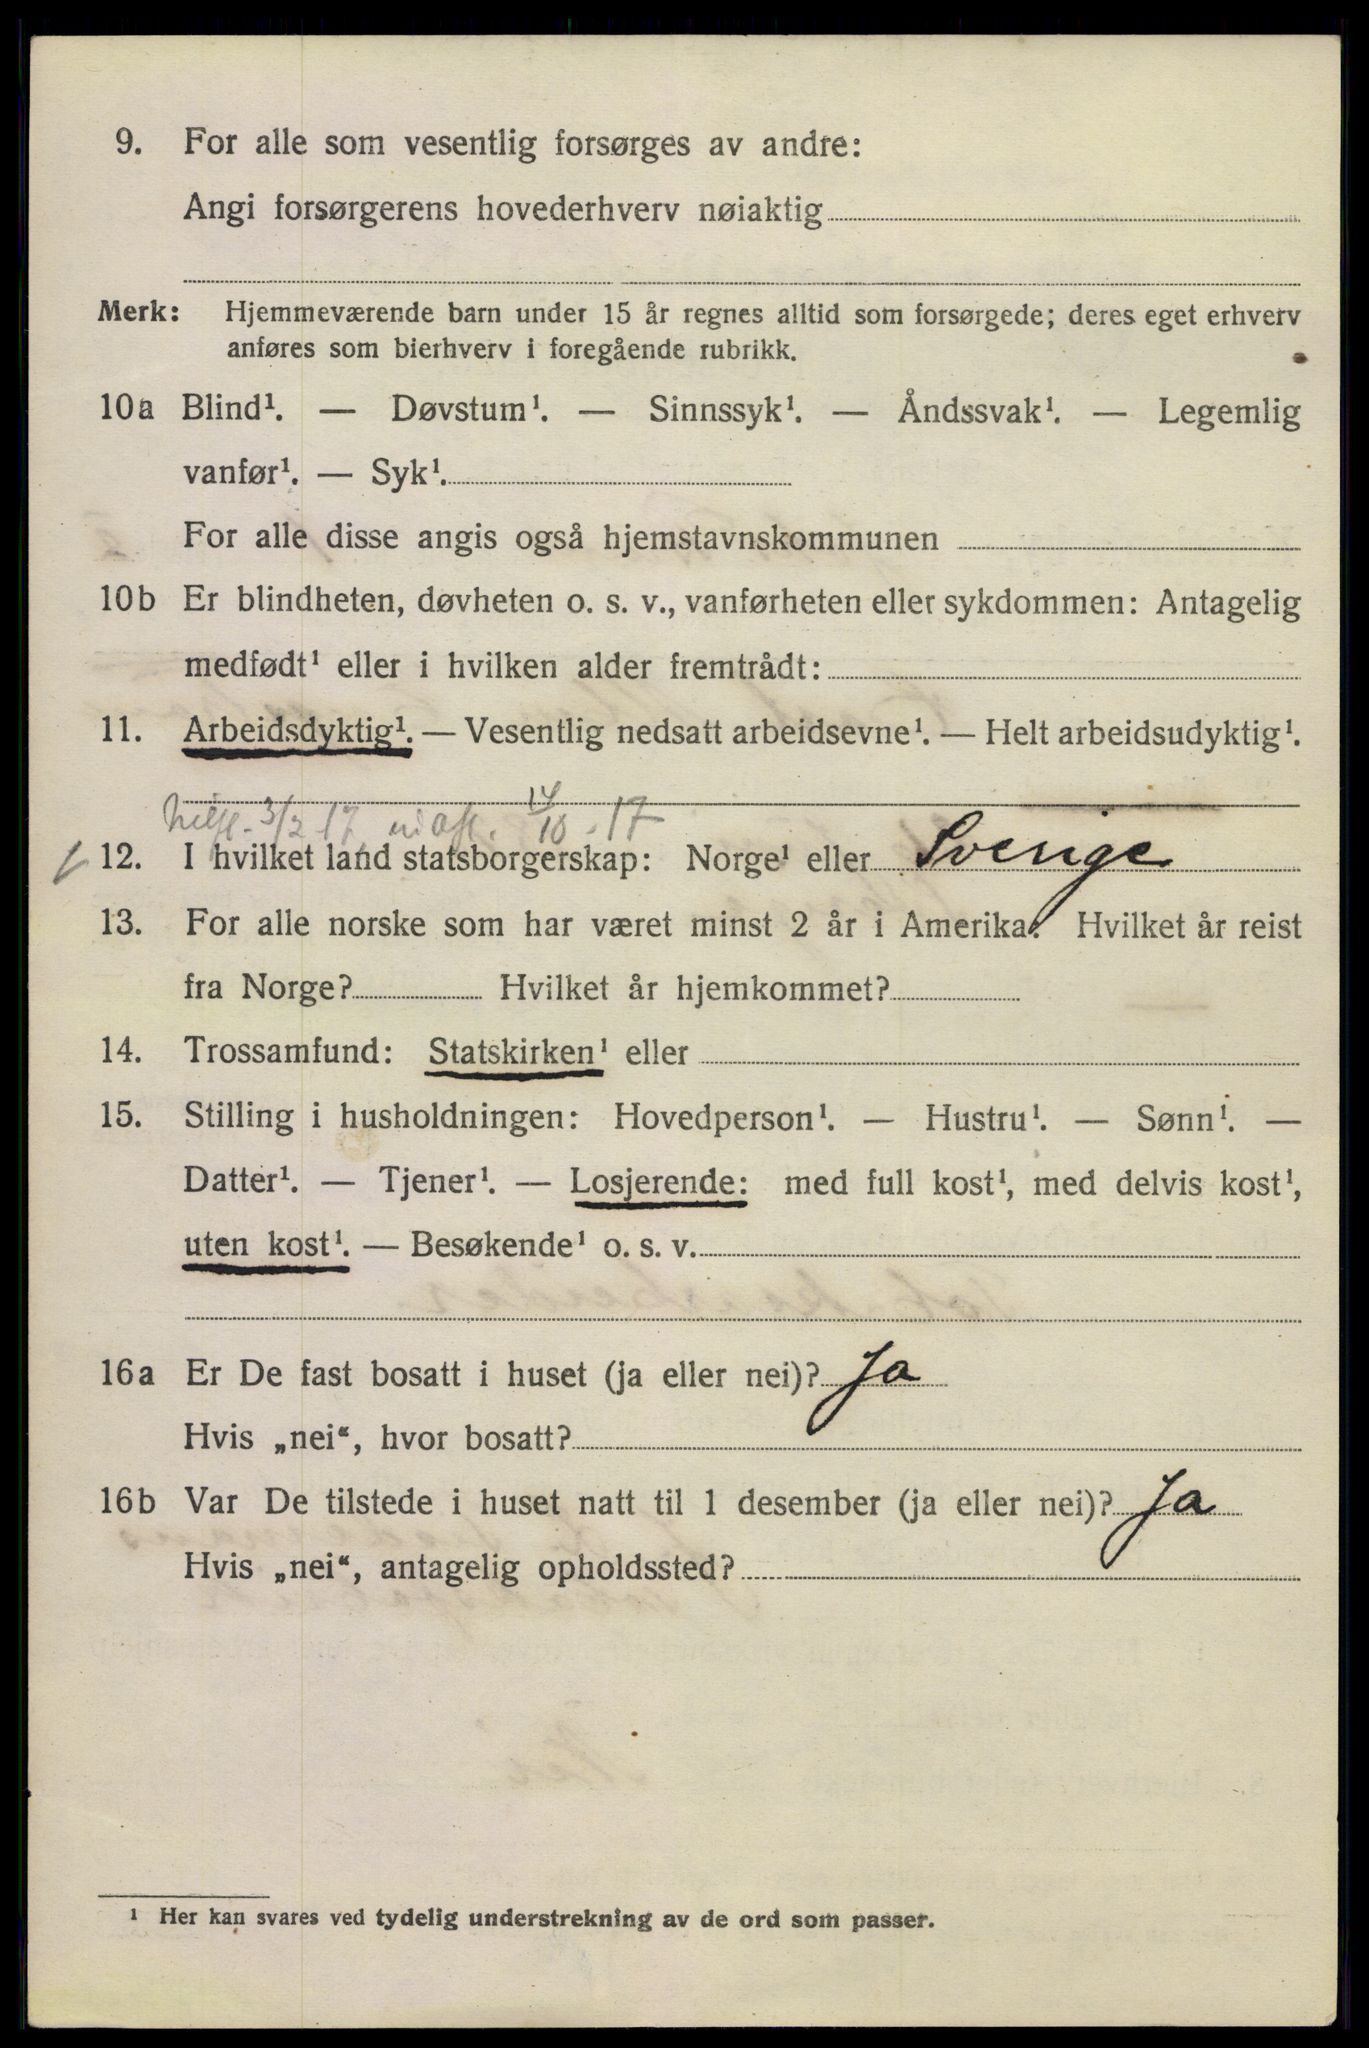 9. For alle som vesentlig forsørges av andre:
Angi forsørgerens hovederhverv nøiaktig
Merk: Hjemmeværende barn under 15 år regnes alltid som forsørgede; deres eget erhverv
anføres som bierhverv i foregående rubrikk.
10a Blind¹. — Døvstum¹. — Sinnssyk¹. — Åndssvak¹. — Legemlig
vanfør¹. — Syk¹.
For alle disse angis også hjemstavnskommunen
10b Er blindheten, døvheten o. s. v., vanførheten eller sykdommen: Antagelig
medfødt¹ eller i hvilken alder fremtrådt:
11. Arbeidsdyktig¹. — Vesentlig nedsatt arbeidsevne¹. — Helt arbeidsudyktig¹.
3/2 17 14/10 - 17
12. I hvilket land statsborgerskap: Norge¹ eller Sverige
13. For alle norske som har været minst 2 år i Amerika: Hvilket år reist
fra Norge? Hvilket år hjemkommet?
14. Trossamfund: Statskirken¹ eller
15. Stilling i husholdningen: Hovedperson¹. — Hustru¹. — Sønn¹. —
Datter¹. — Tjener¹. — Losjerende: med full kost¹, med delvis kost¹,
uten kost¹. — Besøkende¹ o. s. v.
16a Er De fast bosatt i huset (ja eller nei)? Ja
Hvis „nei“, hvor bosatt?
16b Var De tilstede i huset natt til 1 desember (ja eller nei)? Ja
Hvis „nei“, antagelig opholdssted?
¹ Her kan svares ved tydelig understrekning av de ord som passer.